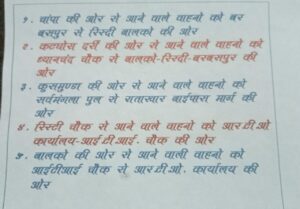 १. चांपा की ओर से आने वाले वाहनो को बर
बसपुर से रिस्दी बालको की ओर
२. कटघोरा दर्री की ओर से आने वाले वाहनो को
ध्यानचंद चौक से बालको-रिस्दी-बरबसपुर की
ओर
३. कुसमुण्डा की ओर से आने वाले वाहनो को
सर्वमंगला पुल से रातारवार बाईपारा मार्ग की
ओर
४. रिस्दी चौक से आने वाले वाहनो को आर.टी.ओ.
कार्यालय-आई.टी.आई. चौक की ओर
५. बालको की ओर से आने वाली वाहनो को
आईटीआई चौक से आर.टी.ओ. कार्यालय की
ओर